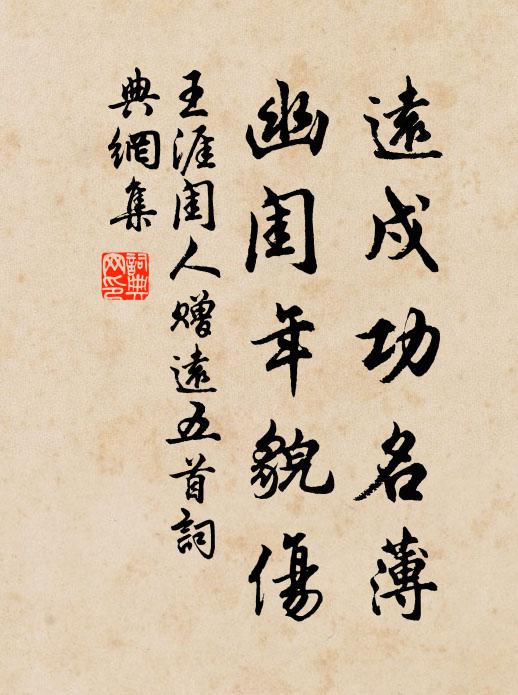 遠戍功名薄
幽閨年貌傷
王涯閨人贈遠五首詞
典網集
詞典网印